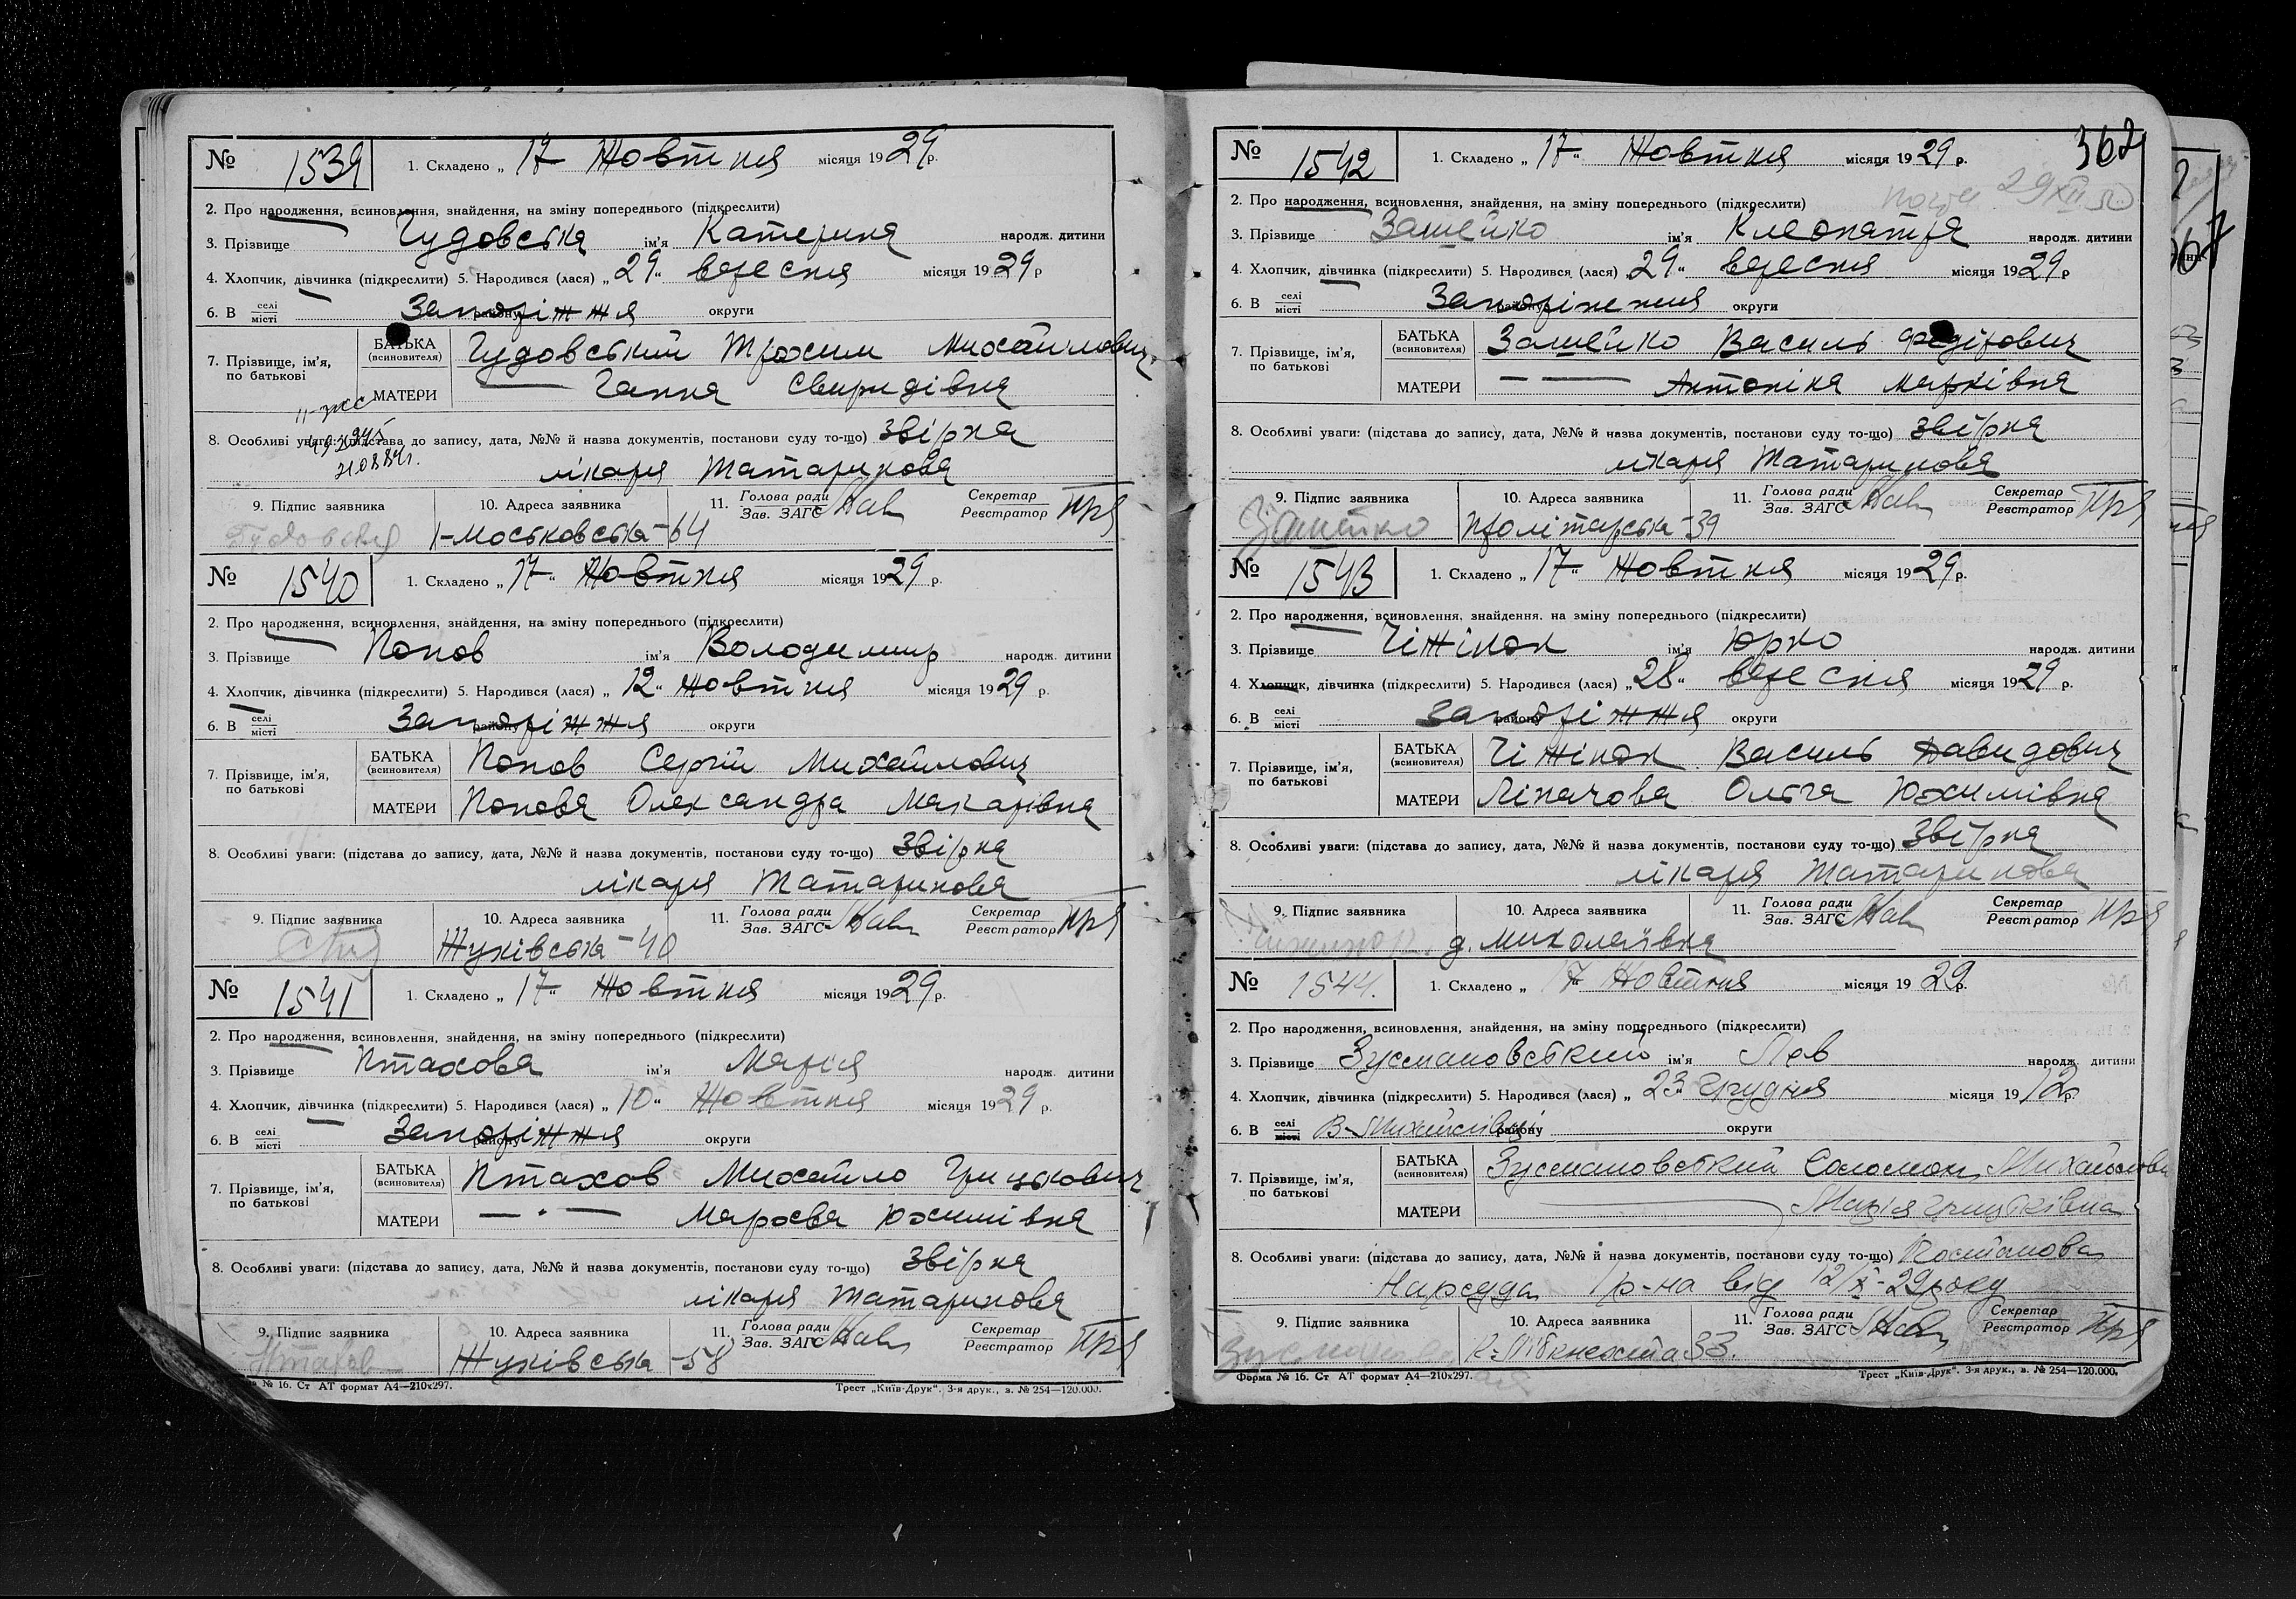 № 1539
1. Складено „ 17 “ Жовтня місяця 1929 р.
2. Про народження, всиновлення, знайдення, на зміну попереднього (підкреслити)
3. Прізвище Гудовська ім'я Катерина народж. дитини
4. Хлопчик, дівчинка (підкреслити) 5. Народився (лася) „ 29 “ вересня місяця 1929 р
6. В селі місті Запоріжжя району округи
7. Прізвище, ім'я, по батькові
БАТЬКА (всиновителя) Гудовський Трохим Михайлович
МАТЕРИ — Ганна Свиридівна
8. Особливі уваги: (підстава до запису, дата, №№ й назва документів, постанови суду то-що) Звірка
лікаря Татаринова
9. Підпис заявника 10. Адреса заявника 11. Голова ради Зав. ЗАГС Секретар Реєстратор
Гудовська І-Московська-64
№ 1540
1. Складено „ 17 “ Жовтня місяця 1929 р.
2. Про народження, всиновлення, знайдення, на зміну попереднього (підкреслити)
3. Прізвище Попов ім'я Володимир народж. дитини
4. Хлопчик, дівчинка (підкреслити) 5. Народився (лася) „ 12 “ Жовтня місяця 1929 р.
6. В селі місті Запоріжжя району округи
7. Прізвище, ім'я, по батькові
БАТЬКА (всиновителя) Попов Сергій Михайлович
МАТЕРИ Попова Олександра Макарівна
8. Особливі уваги: (підстава до запису, дата, №№ й назва документів, постанови суду то-що) Звірка
лікаря Татаринова
9. Підпис заявника 10. Адреса заявника 11. Голова ради Зав. ЗАГС Секретар Реєстратор
Жуківська-40
№ 1541
1. Складено „ 17 “ Жовтня місяця 1929 р.
2. Про народження, всиновлення, знайдення, на зміну попереднього (підкреслити)
3. Прізвище Птахова ім'я Марія народж. дитини
4. Хлопчик, дівчинка (підкреслити) 5. Народився (лася) „ 10 “ Жовтня місяця 1929 р.
6. В селі місті Запоріжжя району округи
7. Прізвище, ім'я, по батькові
БАТЬКА (всиновителя) Птахов Михайло Грицькович
МАТЕРИ — „ — Марфа Юхимівна
8. Особливі уваги: (підстава до запису, дата, №№ й назва документів, постанови суду то-що) Звірка
лікаря Татаринова
9. Підпис заявника 10. Адреса заявника 11. Голова ради Зав. ЗАГС Секретар Реєстратор
Птахов Жуківська-58
№ 16. Ст АТ формат А4—210х297. Трест „Київ-Друк“. 3-я друк., з. № 254—120.000.
362
№ 1542
1. Складено „ 17 “ Жовтня місяця 1929 р.
2. Про народження, всиновлення, знайдення, на зміну попереднього (підкреслити)
3. Прізвище Зашейко ім'я Клеопатра народж. дитини
4. Хлопчик, дівчинка (підкреслити) 5. Народився (лася) 29 “ вересня місяця 1929 р
6. В селі місті Запоріжжя району округи
7. Прізвище, ім'я, по батькові
БАТЬКА (всиновителя) Зашейко Василь Федірович
МАТЕРИ — — Антоніна Марківна
8. Особливі уваги: (підстава до запису, дата, №№ й назва документів, постанови суду то-що) Звірка
лікаря Татаринова
9. Підпис заявника 10. Адреса заявника 11. Голова ради Зав. ЗАГС Секретар Реєстратор
Зашейко Пролітарська-39
№ 1543
1. Складено „ 17 “ Жовтня місяця 1929 р.
2. Про народження, всиновлення, знайдення, на зміну попереднього (підкреслити)
3. Прізвище Чіжінок ім'я Юрко народж. дитини
4. Хлопчик, дівчинка (підкреслити) 5. Народився (лася) „ 28 “ вересня місяця 1929 р.
6. В селі місті Запоріжжя району округи
7. Прізвище, ім'я, по батькові
БАТЬКА (всиновителя) Чіжінок Василь Давидович
МАТЕРИ Ліпачова Ольга Юхимівна
8. Особливі уваги: (підстава до запису, дата, №№ й назва документів, постанови суду то-що) Звірка
лікаря Татаринова
9. Підпис заявника 10. Адреса заявника 11. Голова ради Зав. ЗАГС Секретар Реєстратор
д. Миколаївка
№ 1544.
1. Складено „ 17 “ Жовтня місяця 1929 р.
2. Про народження, всиновлення, знайдення, на зміну попереднього (підкреслити)
3. Прізвище Зусмановський ім'я Лев народж. дитини
4. Хлопчик, дівчинка (підкреслити) 5. Народився (лася) „ 23 “ Грудня місяця 1912 р.
6. В селі місті В-Михайлівці району округи
7. Прізвище, ім'я, по батькові
БАТЬКА (всиновителя) Зусмановський Соломон Михайлович
МАТЕРИ — Марія Грицьківна
8. Особливі уваги: (підстава до запису, дата, №№ й назва документів, постанови суду то-що) Постанова
Нарсуда 1 р-на від 12/X-29 року
9. Підпис заявника 10. Адреса заявника 11. Голова ради Зав. ЗАГС Секретар Реєстратор
33.
Форма № 16. Ст АТ формат А4—210х297. Трест „Київ-Друк“. 3-я друк., з. № 254—120.000.